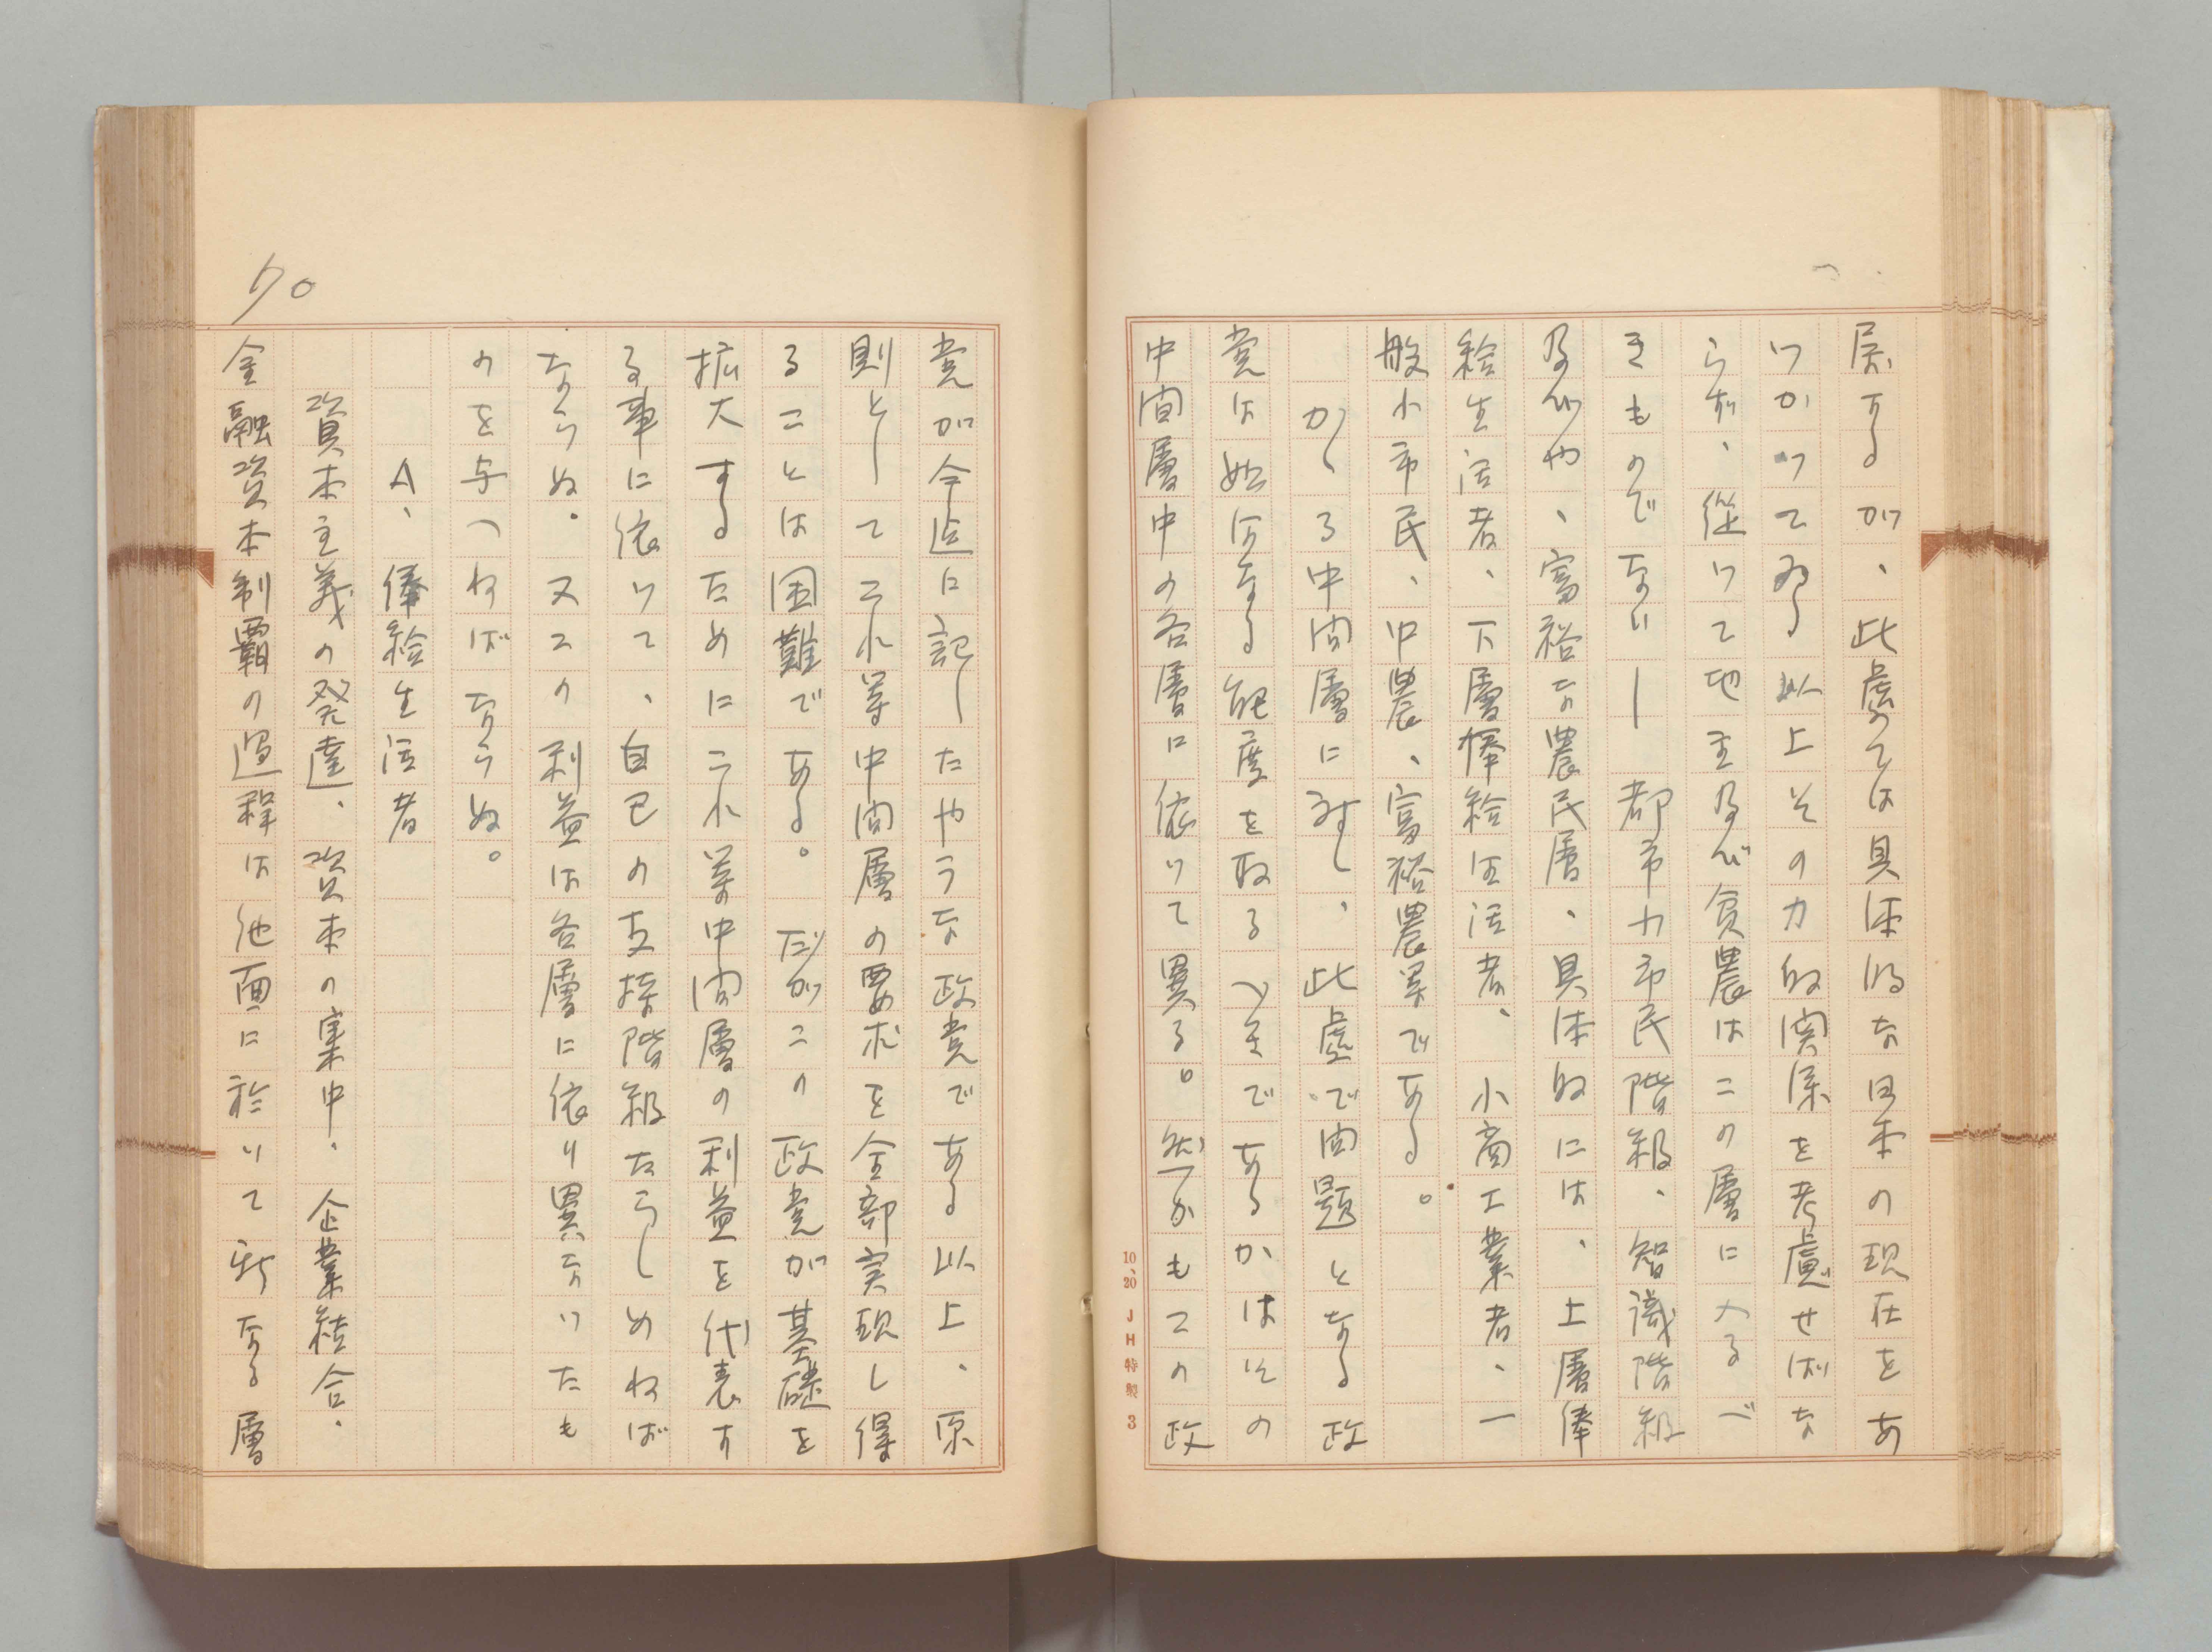 属するが、此處では具体的な日本の現在をあ
つかつてゐる以上その力的関係を考慮せばな
らず、従つて地主及び貧農はこの層に入るべ
きものでない―都市力市民階級、智識階級
及びや、富裕な農民層、具体的には、上層俸
給生活者、下層俸給生活者、小商工業者、一
般小市民、中農、富裕農等である。
かゝる中間層に対し、此處で問題となる政
党は如何なる態度を取るべきであるかはその
中間層中の各層に依つて異る。然しかもこの政
10、20 JH特製 3
70
党が今迄に記したやうな政党である以上、原
則としてこれ等中間層の要求を全部実現し得
ることは困難である。だがこの政党が基礎を
拡大するためにこれ等中間層の利益を代表す
る事に依つて、自己の支持階級たらしめねば
ならぬ。又この利益は各層に依り異なつたも
のを与へねばならぬ。
A、俸給生活者
資本主義の発達、資本の集中、企業結合、
金融資本制覇の過程は他面に於いて新なる層